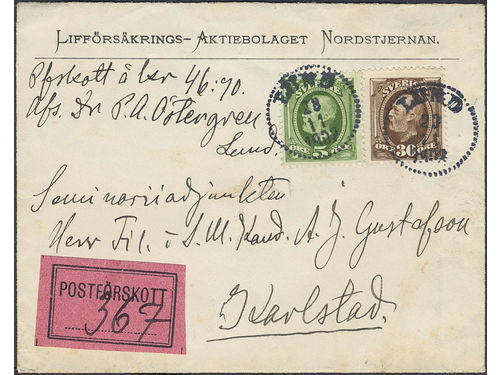 LIFFÖRSÄKRINGS-AKTIEBOLAGET NORDSTJERNAN.
Pfrskott å kr 46:70.
Afs. Dr P. A. Östergren
Lund.
SVERIGE
ÖRE 5 ÖRE
SVERIGE
ÖRE 30 ÖRE
LUND
18
11
LUND
Seminariiadjunkten
Herr Fil. o S. M. Kand. A. J. Gustafson
Karlstad.
POSTFÖRSKOTT
367